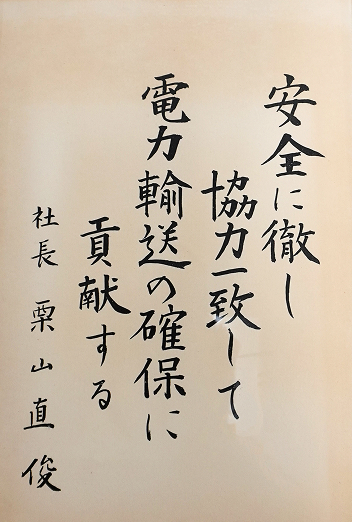 安全に徹し
協力一致して
電力輸送の確保に
貢献する
社長 栗山直俊